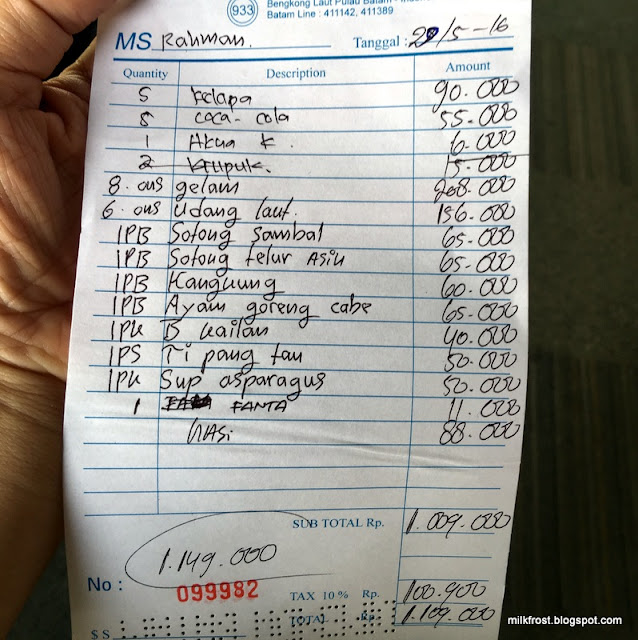 933 Bengkong Laut Pulau Batam - Indone
Batam Line : 411142, 411389
MS Rahman. Tanggal : 29/5-16
Quantity Description Amount
5 kelapa 90.000
5 coca-cola 55.000
1 Akua k. 6.000
2 Krupuk. 15.000
8.ons gelam 208.000
6.ons udang laut. 156.000
1PB Sotong sambal 65.000
1PB Sotong telur ASin 65.000
1PB Kangkung 60.000
1PB Ayam goreng cabe 65.000
1PK B kailan 40.000
1PS Ti pang tau 50.000
1PK Sup asparagus 50.000
1 FANTA 11.000
NASi 88.000
SUB TOTAL Rp. 1.009.000
1.149.000
No : 099982
TAX 10 % Rp. 100.900
TOTAL Rp. 1.109.000
S S
milkfrost.blogspot.com